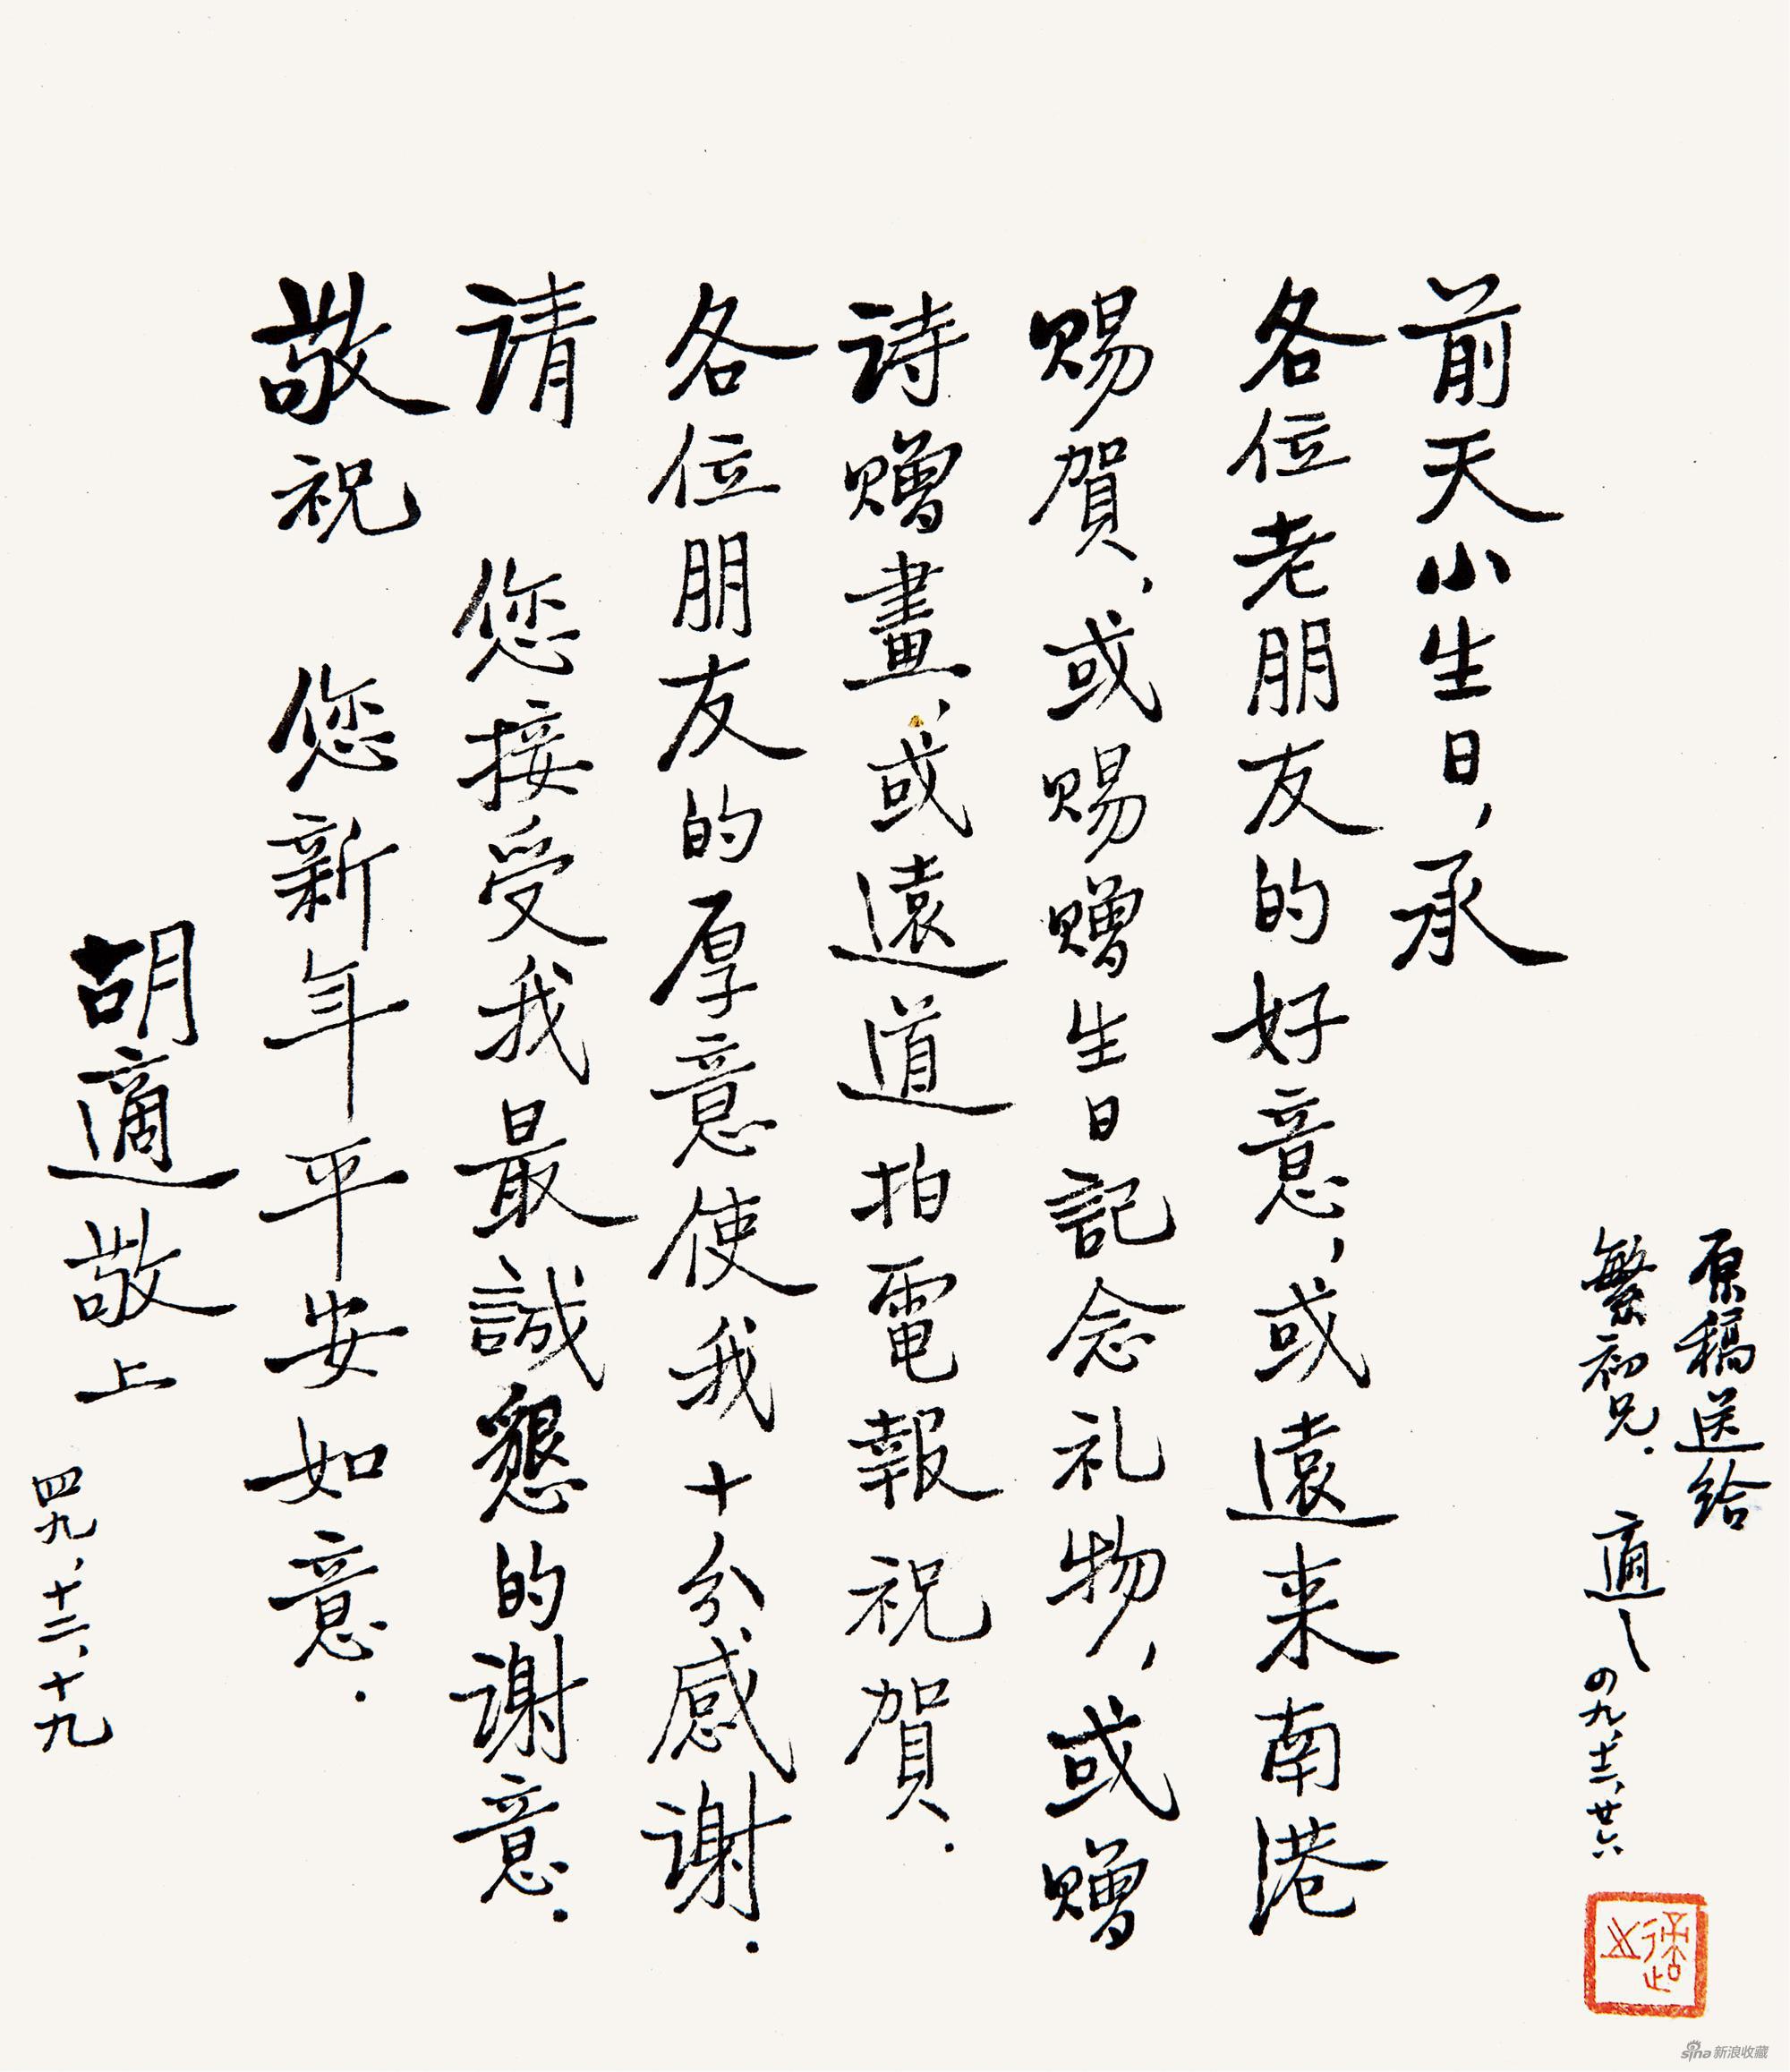 原稿送给
繁初兄.　適之　四九、十二、廿六
前天小生日，承
各位老朋友的好意，或遠来南港
赐賀，或赐赠生日記念礼物，或赠
诗赠畫，或遠道拍電報祝賀.
各位朋友的厚意使我十分感谢.
请　您接受我最誠懇的谢意.
敬祝　您新年平安如意.
胡適敬上　四九、十二、十九
sina新浪收藏